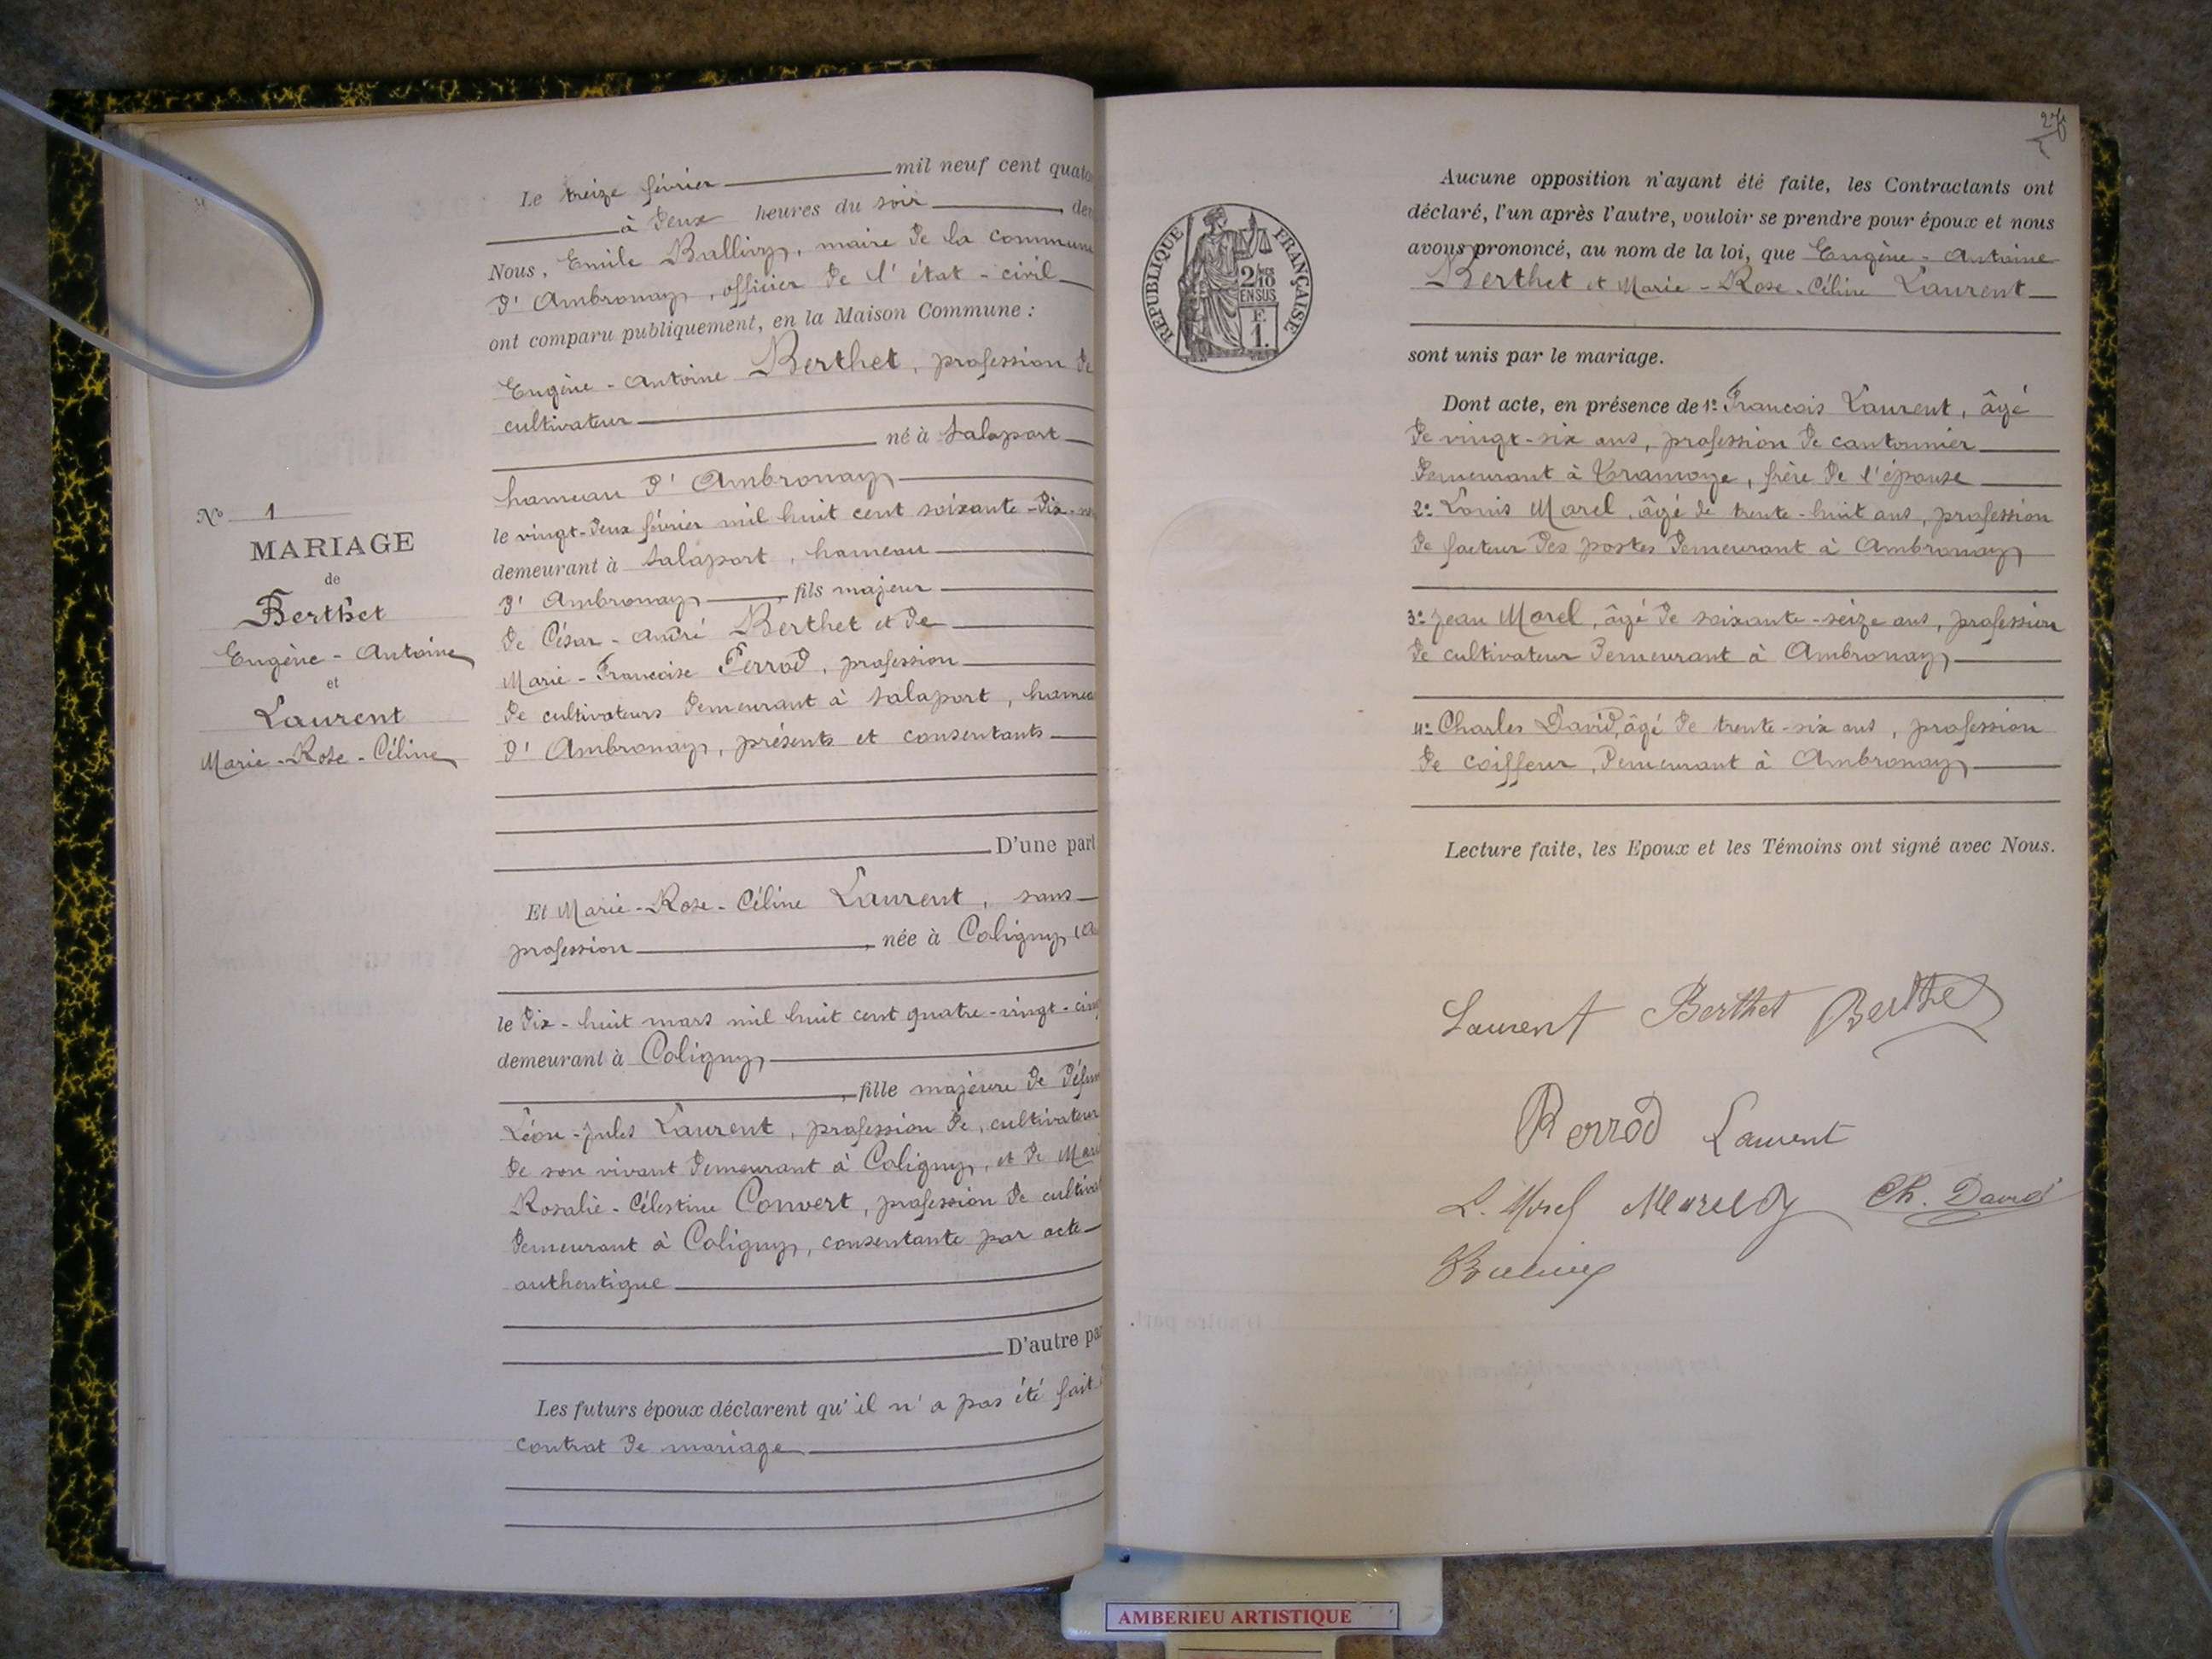 Le treize février mil neuf cent
à deux heures du soir
Nous, Emile Ballivy, maire de la commune
d'Ambronay, officier de l'état-civil
ont comparu publiquement, en la Maison Commune :
Eugène-Antoine Berthet, profession de
cultivateur
né à Salaport
hameau d'Ambronay
le vingt-deux février mil huit cent soixante-dix-
demeurant à Salaport, hameau
d'Ambronay, fils majeur
de César-André Berthet et de
Marie-Françoise Perrod, profession
de cultivateurs demeurant à Salaport,
d'Ambronay, présents et consentants
D'une part
Et Marie-Rose-Céline Laurent, sans
profession, née à Coligny
le dix-huit mars mil huit cent quatre-vingt-
demeurant à Coligny
, fille majeure de
Léon-Jules Laurent, profession de, cultivateur
de son vivant demeurant à Coligny, et de
Rosalie-Célestine Convert, profession de
demeurant à Coligny, consentante par acte
authentique
D'autre
Les futurs époux déclarent qu'il n'a pas été fait
contrat de mariage
No 1
MARIAGE
de
Berthet
Eugène-Antoine
et
Laurent
Marie-Rose-Céline
REPUBLIQUE FRANÇAISE
2/10
EN SUS
F.
1.
Aucune opposition n'ayant été faite, les Contractants ont
déclaré, l'un après l'autre, vouloir se prendre pour époux et nous
avons prononcé, au nom de la loi, que Eugène-Antoine
Berthet et Marie-Rose-Céline Laurent
sont unis par le mariage.
Dont acte, en présence de 1º François Laurent, âgé
de vingt-six ans, profession de cantonnier
demeurant à Tramoye, frère de l'épouse
2º Louis Morel, âgé de trente-huit ans, profession
de facteur des postes demeurant à Ambronay
3º Jean Morel, âgé de soixante-seize ans, profession
de cultivateur demeurant à Ambronay
4º Charles David, âgé de trente-six ans, profession
de coiffeur, demeurant à Ambronay
Lecture faite, les Epoux et les Témoins ont signé avec Nous.
Laurent Berthet Berthet
Perrod Laurent
L. Morel Morel Ch. David
AMBERIEU ARTISTIQUE